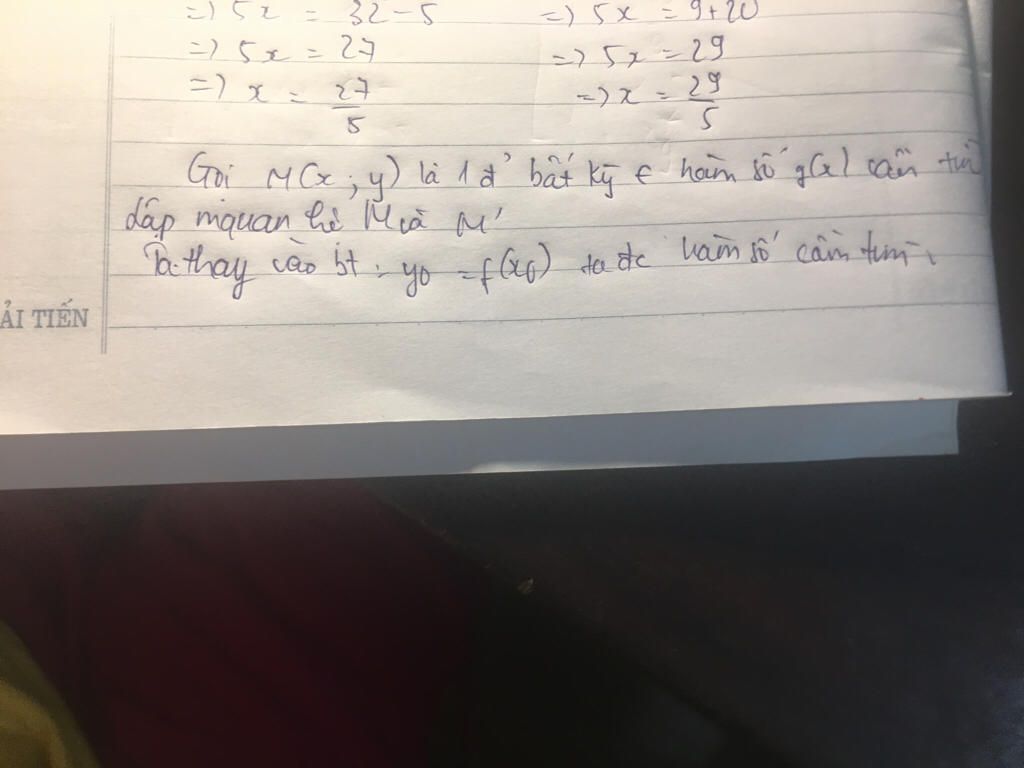 => 5x = 32-5 => 5x = 9+20
=> 5x = 27 => 5x = 29
=> x = 27/5 => x = 29/5
Gọi M(x; y) là 1 đ' bất kỳ ∈ hàm số g(x) cần tìm
lập mquan hệ M và M'
Ta thay vào bt: y0 = f(x0) ta đc hàm số cần tìm.
ẢI TIẾN